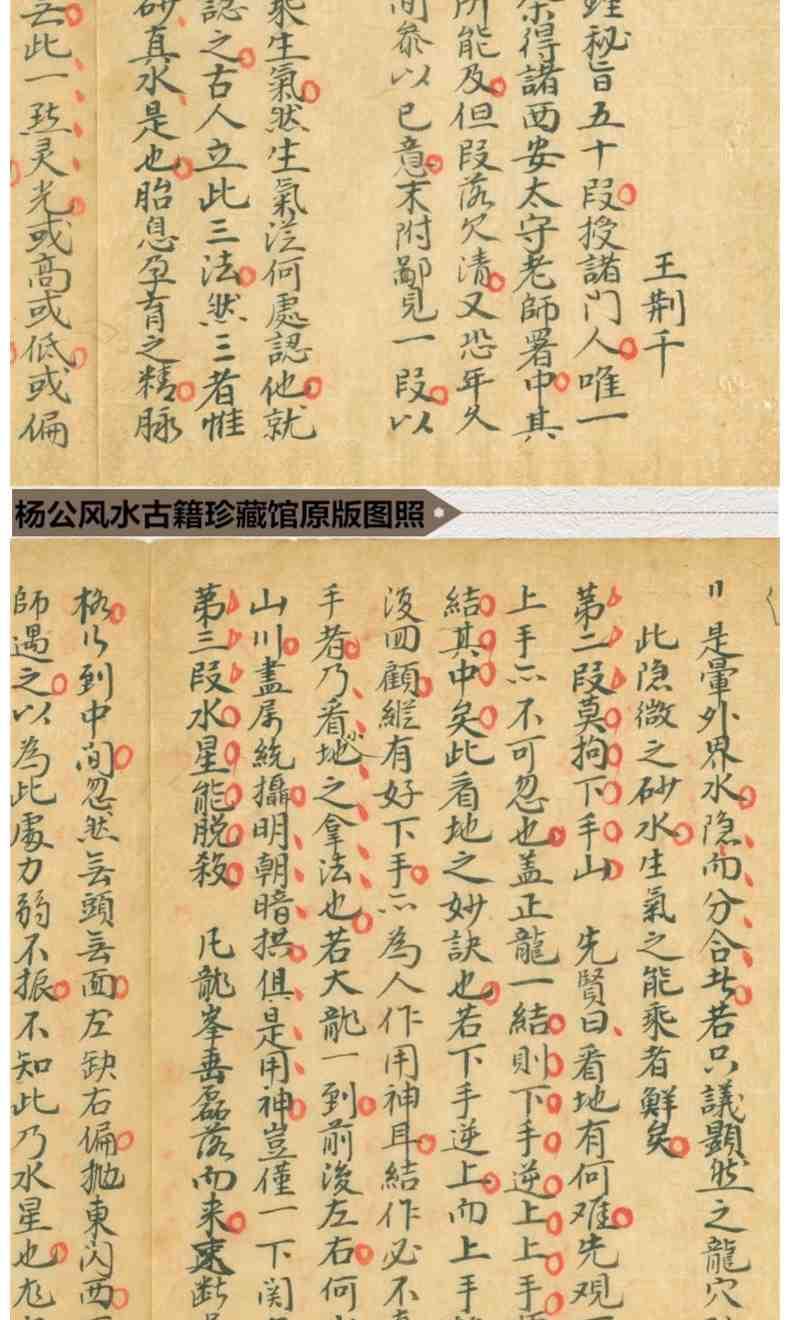 王荆千
秘旨五十段授諸門人唯一
得諸西安太守老師署中其
所能及但段落欠清又恐年久
间叅以已意末附鄙見一段以
乘生氣然生氣從何處認他就
認之古人立此三法然三者惟
砂真水是也胎息孕育之精脉
此一㸃灵光或高或低或偏
杨公风水古籍珍藏馆原版图照
是暈外界水隐而分合若只議顯然之龍穴
此隐微之砂水生氣之能乘者鮮矣
第二段莫拘下手山 先賢曰看地有何难先观
上手亦不可忽也盖正龍一結則下手逆上上手
結其中矣此看地之妙訣也若下手逆上而上手
後回顧縱有好下手亦為人作用神耳結作必不
手者乃看地之拿法也若大龍一到前後左右何
山川盡属統攝明朝暗拱俱是用神豈僅一下関
第三段水星能脱殺 凡龍峯岳磊落而来速断
格以到中间忽然无頭无面左缺右偏抛東闪西
師遇之以為此處力弱不振不知此乃水星也尤